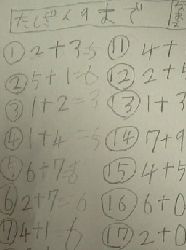 たしざん9まで
① 2+3=5 ⑪ 4+
② 5+1=6 ⑫ 2+
③ 1+2=3 ⑬ 1+3
④ 1+4=5 ⑭ 7+9
⑤ 6+7= ⑮ 4+5
⑥ 2+7= ⑯ 6+0
⑰ 2+0
4+1=